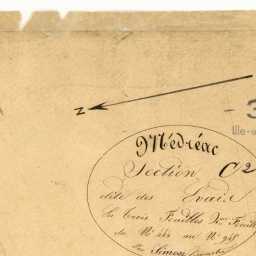 N
3
Ille-
Médréac
Section C2
dite des Evaix
En Trois Feuilles 2me Feuille
du No 484 au No 948
Par Simon